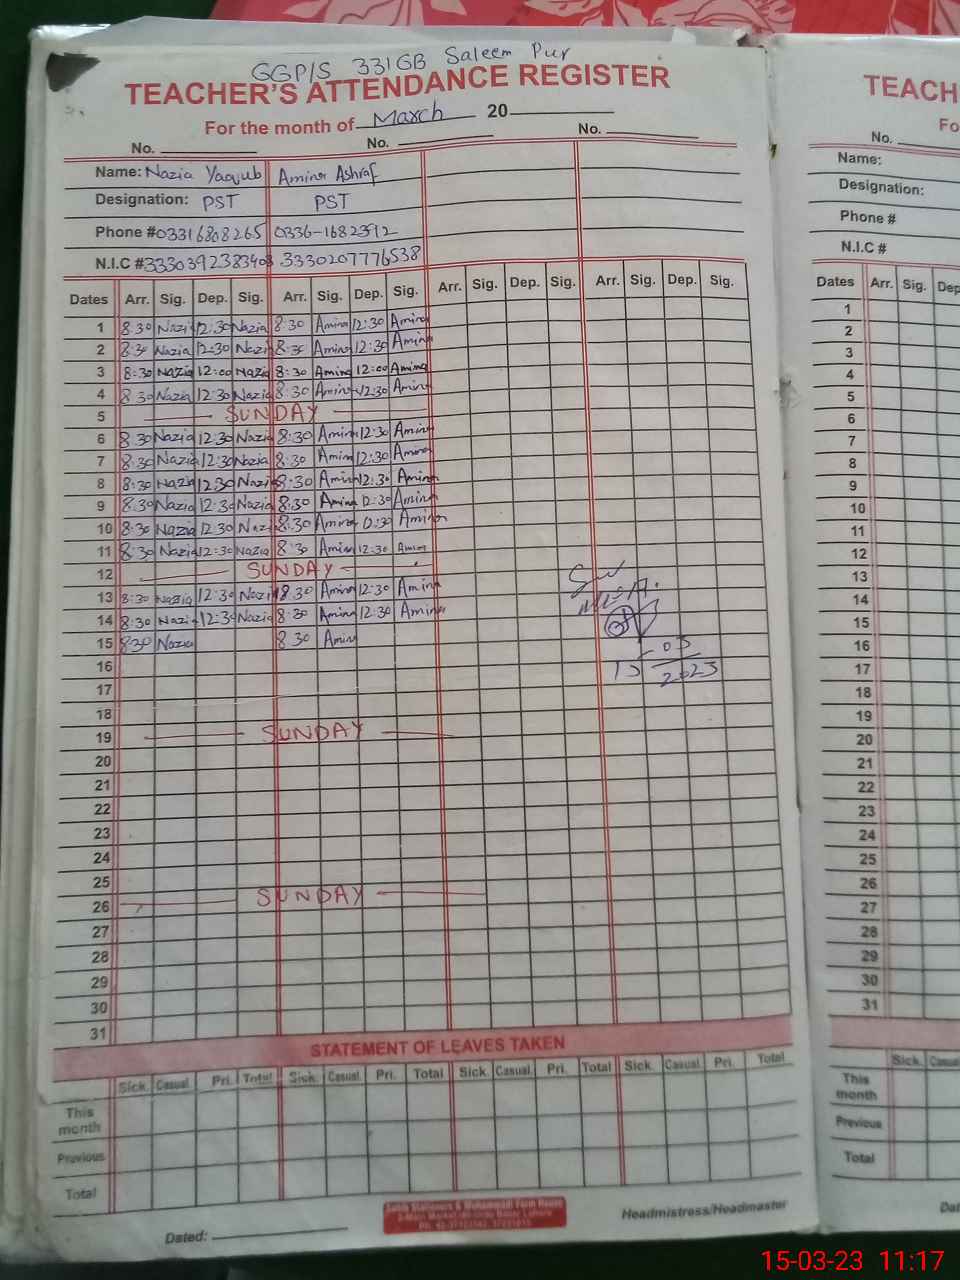 GGP/S 331GB Saleem Pur
TEACHER'S ATTENDANCE REGISTER
For the month of March 20
No. No. No.
Name: Nazia Yaqub Amina Ashraf
Designation: PST PST
Phone #03316808265 0336-1682392
N.I.C #3330392383408 3330207776538
Dates Arr. Sig. Dep. Sig. Arr. Sig. Dep. Sig. Arr. Sig. Dep. Sig. Arr. Sig. Dep. Sig.
1 8:30 Nazia 12:30 Nazia 8:30 Amina 12:30 Amina
2 8:30 Nazia 12:30 Nazia 8:30 Amina 12:30 Amina
3 8:30 Nazia 12:00 Nazia 8:30 Amina 12:00 Amina
4 8:30 Nazia 12:30 Nazia 8:30 Amina 12:30 Amina
5 SUNDAY
6 8:30 Nazia 12:30 Nazia 8:30 Amina 12:30 Amina
7 8:30 Nazia 12:30 Nazia 8:30 Amina 12:30 Amina
8 8:30 Nazia 12:30 Nazia 8:30 Amina 12:30 Amina
9 8:30 Nazia 12:30 Nazia 8:30 Amina 12:30 Amina
10 8:30 Nazia 12:30 Nazia 8:30 Amina 12:30 Amina
11 8:30 Nazia 12:30 Nazia 8:30 Amina 12:30 Amina
12 SUNDAY
13 8:30 Nazia 12:30 Nazia 8:30 Amina 12:30 Amina
14 8:30 Nazia 12:30 Nazia 8:30 Amina 12:30 Amina
15 8:30 Nazia 8:30 Amina
15-03
2023
16
17
18
19 SUNDAY
20
21
22
23
24
25
26 SUNDAY
27
28
29
30
31
STATEMENT OF LEAVES TAKEN
Sick. Casual. Pri. Total Sick. Casual. Pri. Total Sick. Casual. Pri. Total Sick. Casual. Pri. Total
This month
Previous
Total
Dated: Headmistress/Headmaster
TEACH
Fo
No.
Name:
Designation:
Phone #
N.I.C #
Dates Arr. Sig. Dep
1
2
3
4
5
6
7
8
9
10
11
12
13
14
15
16
17
18
19
20
21
22
23
24
25
26
27
28
29
30
31
Sick. Casual
This month
Previous
Total
Dat
15-03-23 11:17